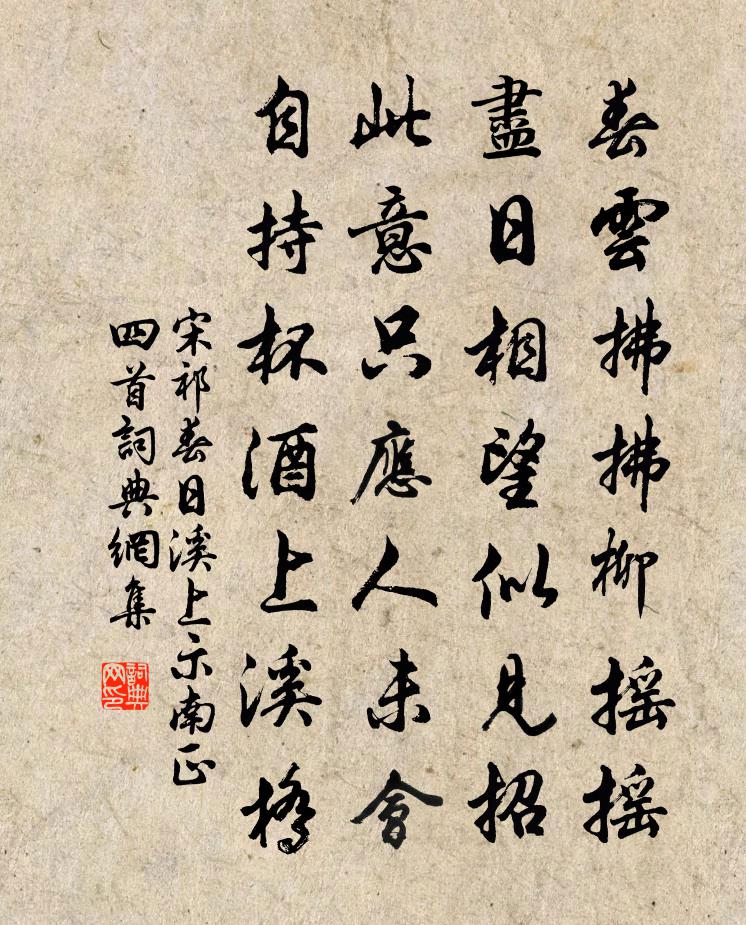 春雲拂拂柳搖搖
盡日相望似見招
此意只應人未會
自持杯酒上溪橋
宋祁春日溪上示南正
四首詞典網集
詞典網印